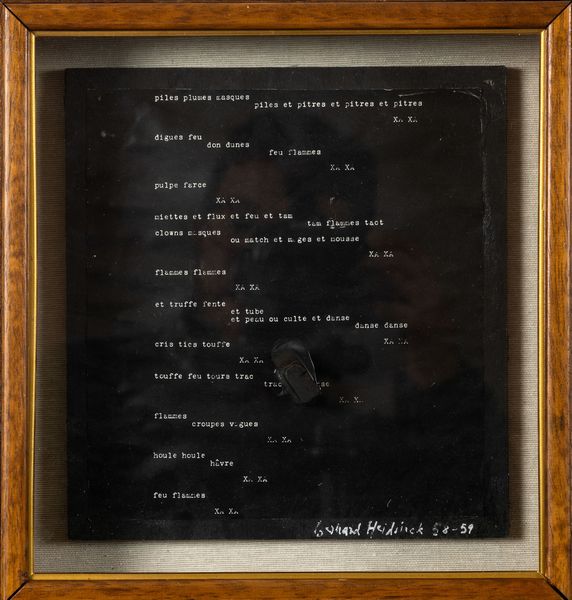 piles plumes masques
piles et pitres et pitres et pitres
XA XA
digues feu
don dunes
feu flammes
XA XA
pulpe farce
XA XA
miettes et flux et feu et tam
tam flammes tact
clowns masques
ou match et mages et mousse
XA XA
flammes flammes
XA XA
et truffe fente
et tube
et peau ou culte et danse
danse danse
cris tics touffe
XA XA
XA XA
touffe feu tours trac
trac
XA XA
flammes
croupes vagues
XA XA
houle houle
hâvre
XA XA
feu flammes
XA XA
58-59